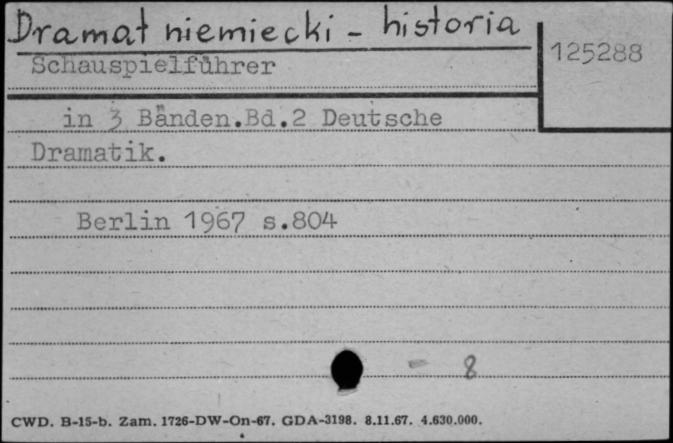 Dramat niemiecki - historia
125288
Schauspielführer
in 3 Bänden.Bd.2 Deutsche
Dramatik.
Berlin 1967 s.804
- 8
CWD. B-15-b. Zam. 1726-DW-On-67. GDA-3198. 8.11.67. 4.630.000.